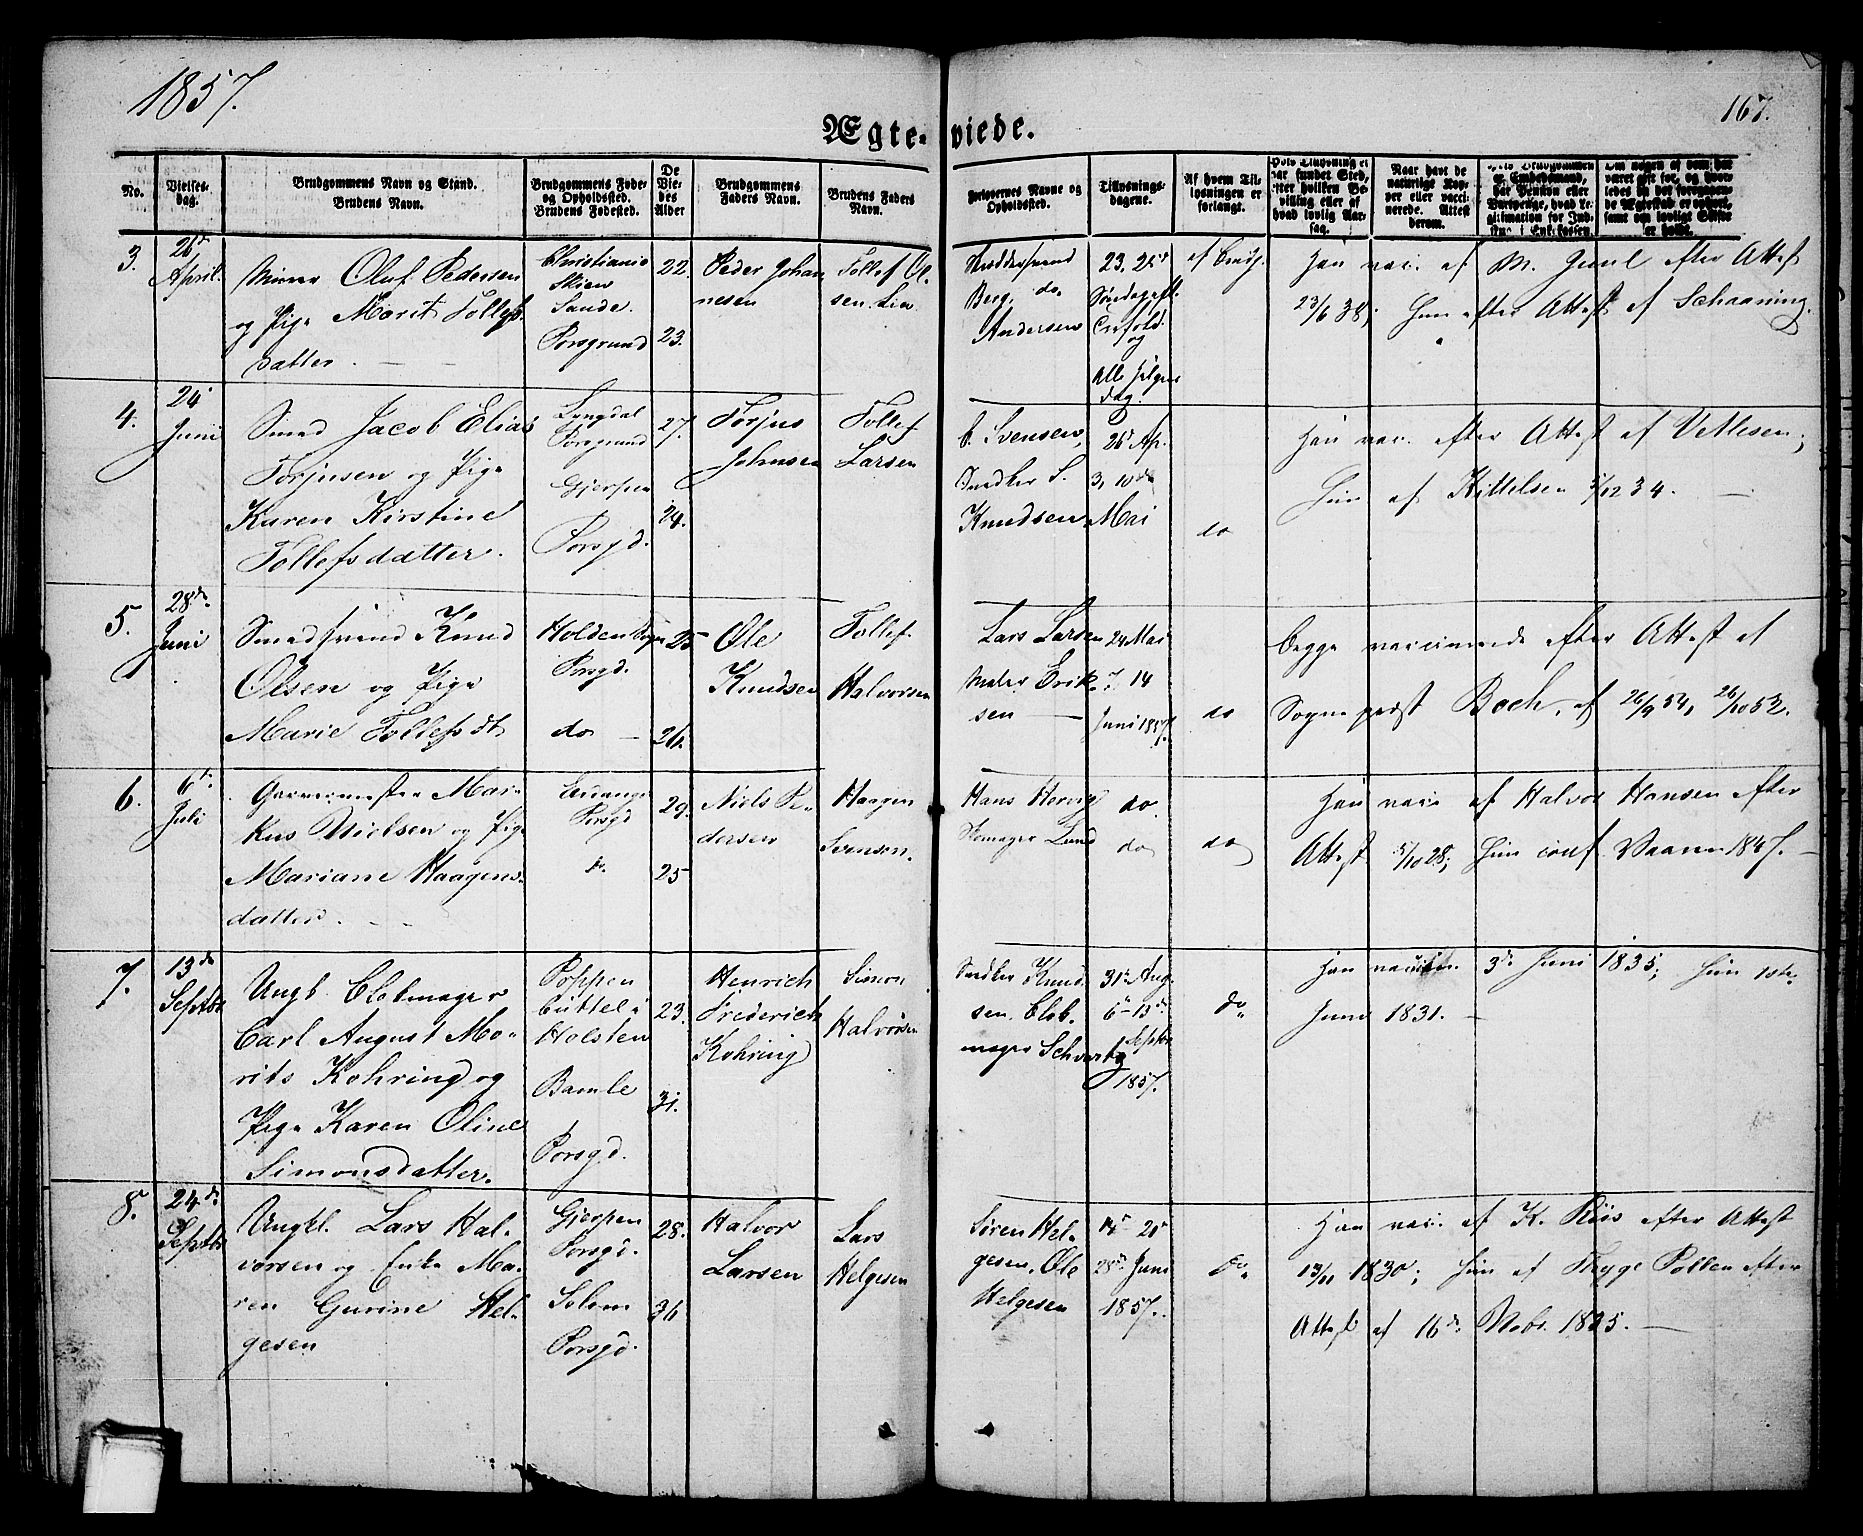 1857.
167.
Ægte-viede.
No.
Vielses-
dag.
Brudgommens Navn og Stand.
Brudens Navn.
Brudgommens Føde-
og Opholdssted.
Brudens Fødested.
De
Vie-
des
Alder
Brudgommens
Faders Navn.
Brudens Faders
Navn.
Forlovernes Navne og
Opholdssted.
Tillysnings-
dagene.
Af hvem Til-
lysningen er
forlangt.
Hvis Tillysning ei
har fundet Sted,
efter hvilken Be-
villing eller af
hvad lovlig Aar-
sag.
Naar havt de
naturlige Kop-
per eller vacci-
nerede. Attest
derom.
3.
26de
April.
Oluf Pedersen
og Pige Marit Tollefs-
datter.
Christiania
Skien
Sande.
Porsgrund
22.
23.
Peder Johan
nesen
Tollef Ol-
sen Lia
Berg, do
Andersen
23. 25de
Søndag
og
Alle Helgens
Dag.
Han vac. af M. Juul efter Attest
23/6 38; Hun efter Attest af Schaaning.
4.
24
Juni
Smed Jacob Elias
Torjusen og Pige
Karen Kirstine
Tollefsdatter.
Lyngdal
Porsgrund
Gjerpen
Porsgd.
27.
24.
Torjus
Johnsen
Tollef
Larsen
C. Svensen,
Snedker S.
Knudsen
26de Ap.
3, 10de
Mai
do
Han vac. efter Attest af Vetlesen;
Hun af Kittelsen 5/12 34.
5.
28de
Juni
Smedsvend Knud
Olsen og Pige
Marie Tollefsdt.
Holden
Porsgd.
do
25
26.
Ole
Knudsen
Tollef
Halvorsen
Lars Larsen
Maler Erik-
sen
24 Mai
7. 14
Juni 1857.
do
Begge vaccinerede efter Attest af
Sognepræst Boch, af 26/9 54, 26/10 52.
6.
6te
Juli
Garvermester Mar-
kus Nielsen og Pige
Mariane Haagens-
datter.
Eidanger
Porsgd
do
29.
25
Niels Pe-
dersen
Haagen
Svensen.
Hans Hervig
Skomager Lund
do.
do
do
Han vac. af Halvor Hansen efter
Attest 5/10 28; Hun conf. Vaaren 1847.
7.
13de
Septbr
Ungk. Blokmager
Carl August Mo-
rits Kohring og
Pige Karen Oline
Simonsdatter.
Poppen
büttel i
Holsten
Bamle
Porsgd.
23.
31.
Henrich
Frederich
Kohring
Simon
Halvorsen
Snedker Knud-
sen. Blok-
mager Schvartz
31te Aug.
6te 13de
Septbr
1857.
do
Han vaccin. 3de Juni 1835; Hun 1ste
Juni 1831.
8.
24de
Septbr
Ungkl. Lars Hal-
vorsen og Enke Ma-
ren Gurine Hel-
gesen
Gjerpen
Porsgd.
Solum
Porsgd.
28.
36
Halvor
Larsen
Lars
Helgesen
Søren Hel-
gesen, Ole
Helgesen
28de Juni
1857.
do
Han vac. af K. Riis efter Attest
13/11 1830; Hun af Thyge Pollen efter
Attest af 16de Nobr. 1825.